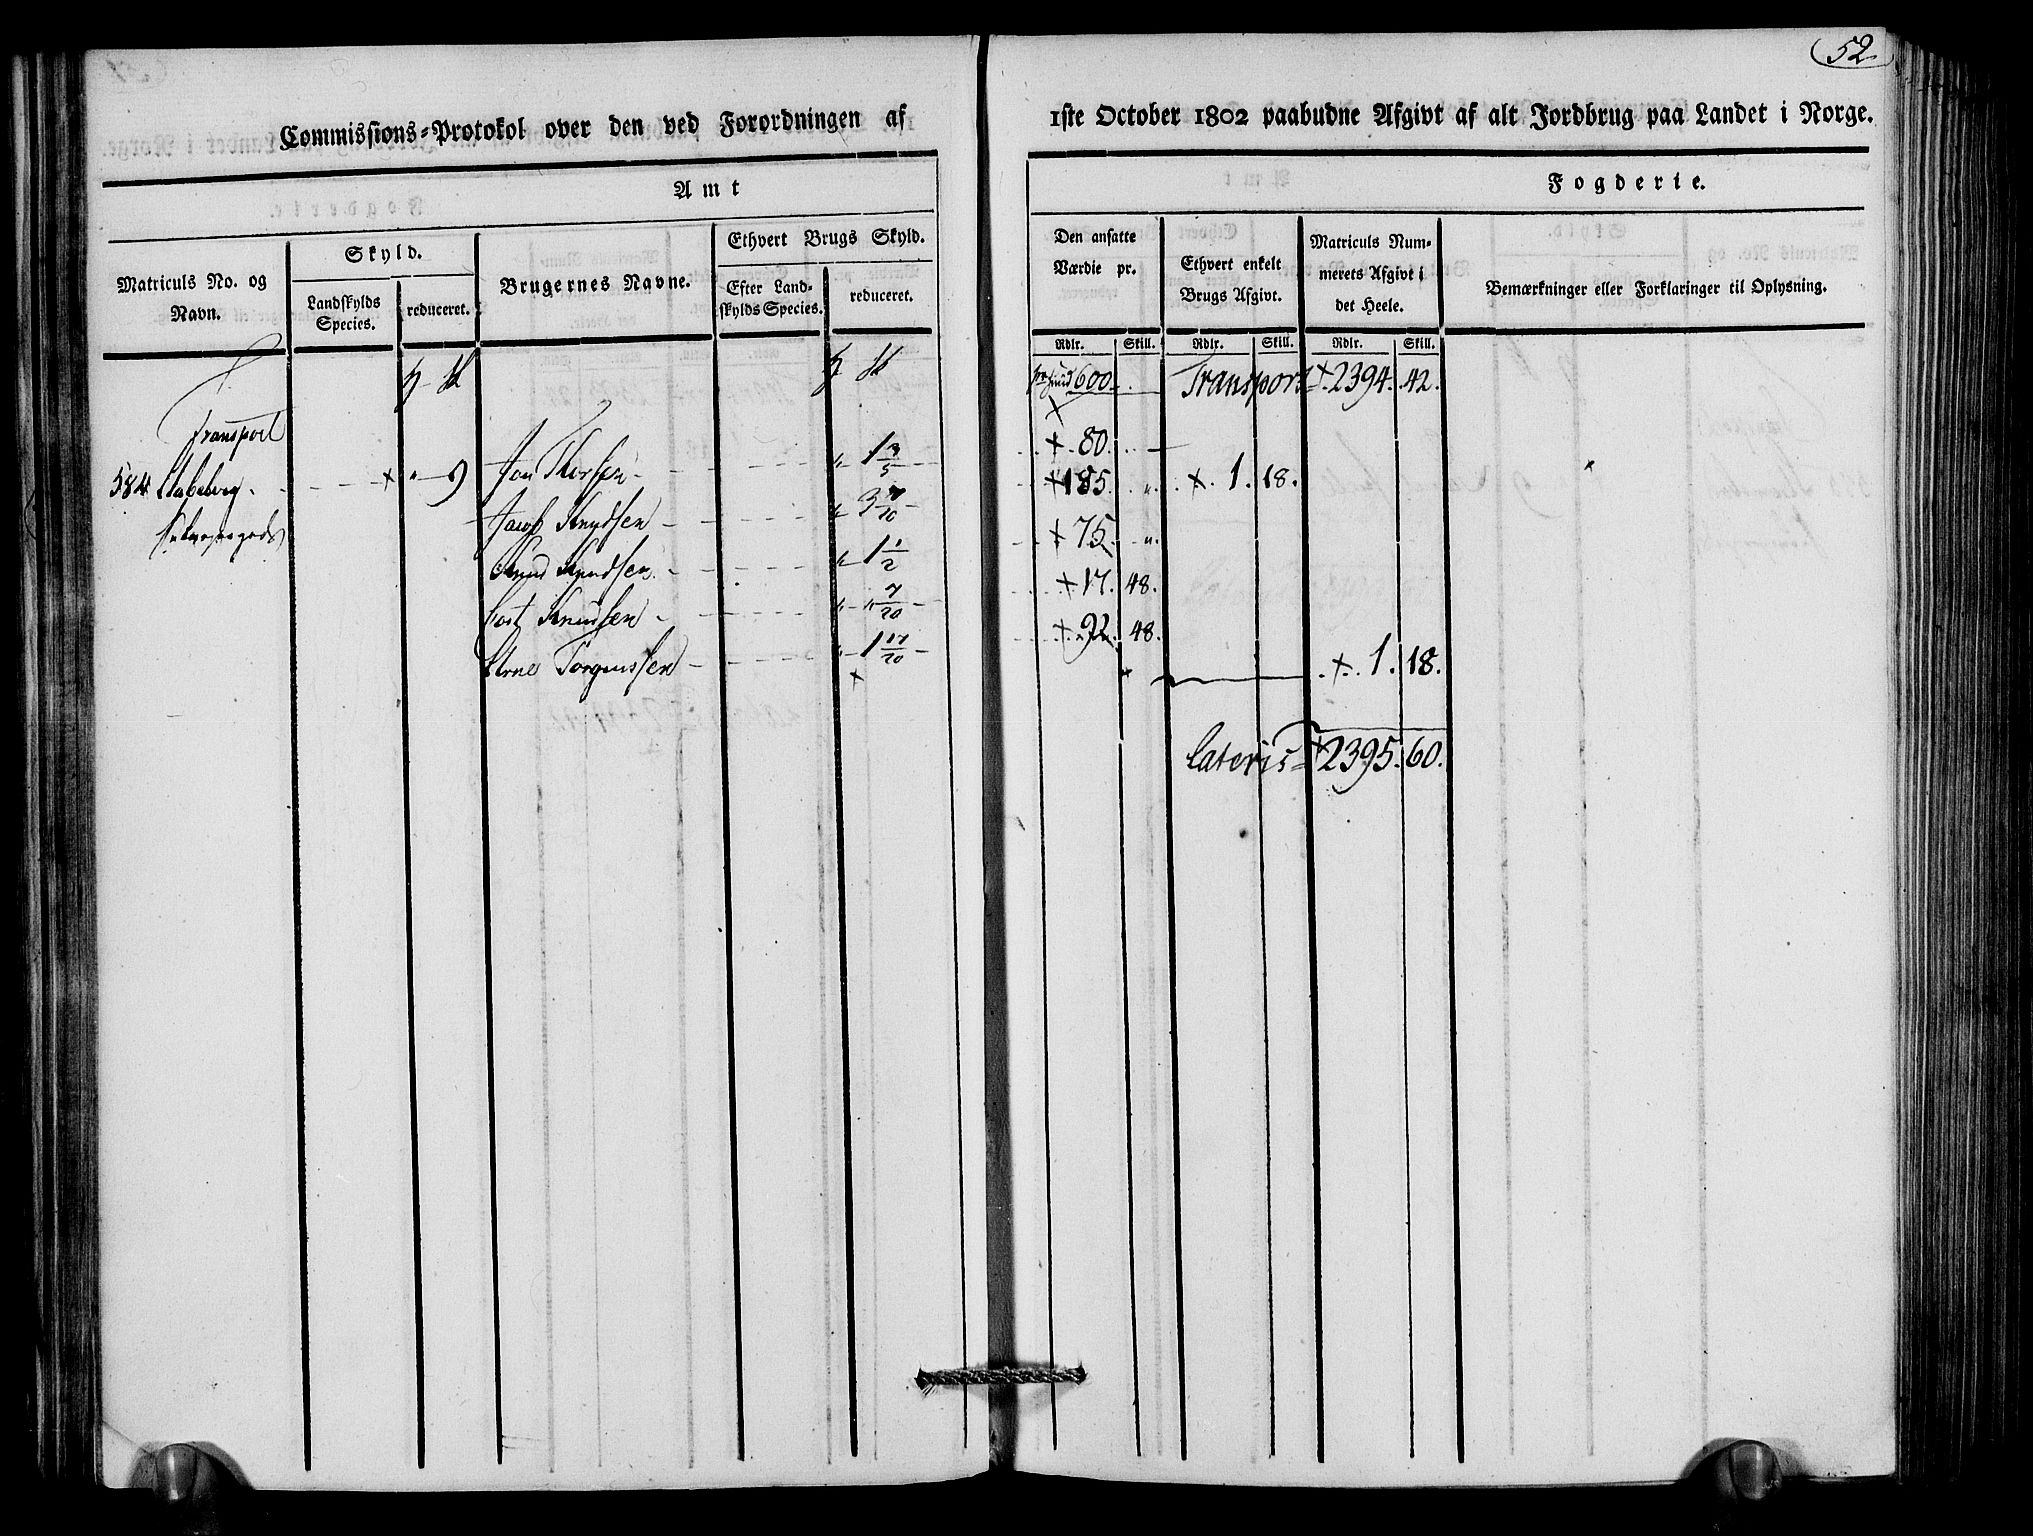 52
Commissions=Protokol over den ved Forordningen af 1ste October 1802 paabudne Afgivt af alt Jordbrug paa Landet i Norge.
Amt
Fogderie.
Matriculs No. og
Navn.
Skyld.
Landskylds
Species.
reduceret.
Brugernes Navne.
Ethvert Brugs Skyld.
Efter Land-
skylds Species.
reduceret.
Den ansatte
Værdie pr.
Ethvert enkelt
Brugs Afgivt.
Matriculs Num-
merets Afgivt i
det Heele.
Bemærkninger eller Forklaringer til Oplysning.
Rdlr. Skill. Rdlr. Skill. Rdlr. Skill.
600 Transport 2394. 42.
Transport
584 9 Jon 1 3/5 80.
Jacob Knudsen 3 7/10 185. 1. 18.
Knud Knudsen 1 1/2 75
Knudsen 7/20 17. 48.
Arne Torgenssen 1 17/20 92. 48.
1. 18.
Lateris 2395. 60.